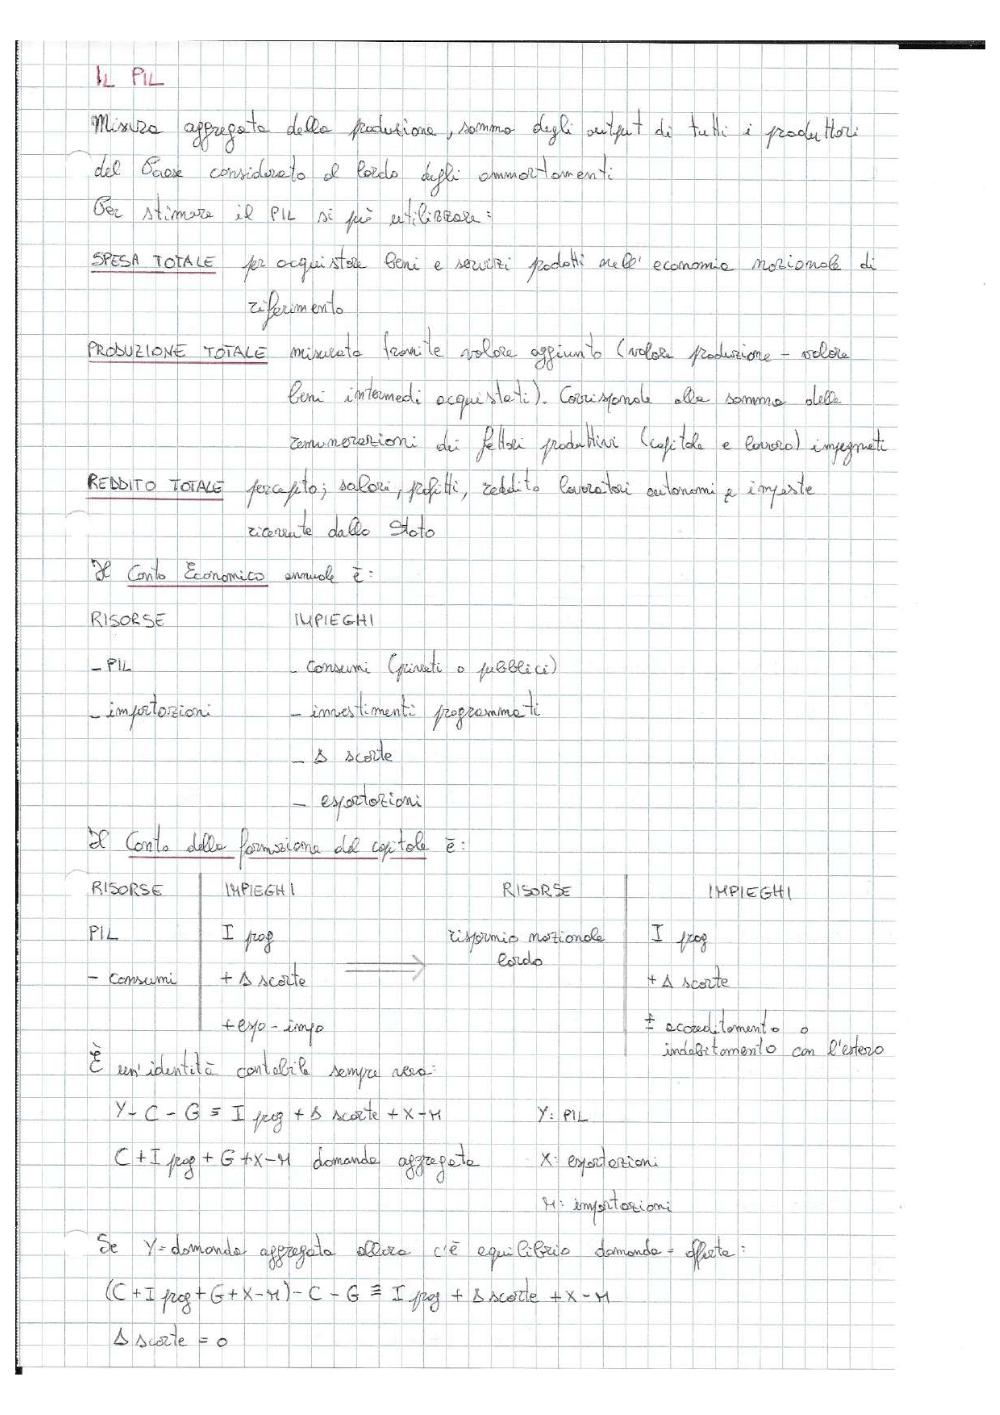 IL PIL
Misura aggregata della produzione, somma degli output di tutti i produttori
del Paese considerato al lordo degli ammortamenti
Per stimare il PIL si può utilizzare:
SPESA TOTALE per acquistare beni e servizi prodotti nell'economia nazionale di
riferimento
PRODUZIONE TOTALE misurata tramite valore aggiunto (valore produzione - valore
beni intermedi acquistati). Corrisponde alla somma delle
remunerazioni dei fattori produttivi (capitale e lavoro) impegnati
REDDITO TOTALE percepito; salari, profitti, reddito lavoratori autonomi e imposte
ricevute dallo Stato
Il Conto Economico annuale è:
RISORSE IMPIEGHI
- PIL - consumi (privati o pubblici)
- importazioni - investimenti programmati
- Δ scorte
- esportazioni
Il Conto della formazione del capitale è:
RISORSE IMPIEGHI RISORSE IMPIEGHI
PIL I prog risparmio nazionale I prog
lordo
- consumi + Δ scorte + Δ scorte
+ expo - impo ± accreditamento o
indebitamento con l'estero
È un'identità contabile sempre vera:
Y - C - G ≡ I prog + Δ scorte + X - M Y: PIL
C + I prog + G + X - M domanda aggregata X: esportazioni
M: importazioni
Se Y = domanda aggregata allora c'è equilibrio domanda - offerta:
(C + I prog + G + X - M) - C - G ≡ I prog + Δ scorte + X - M
Δ scorte = 0